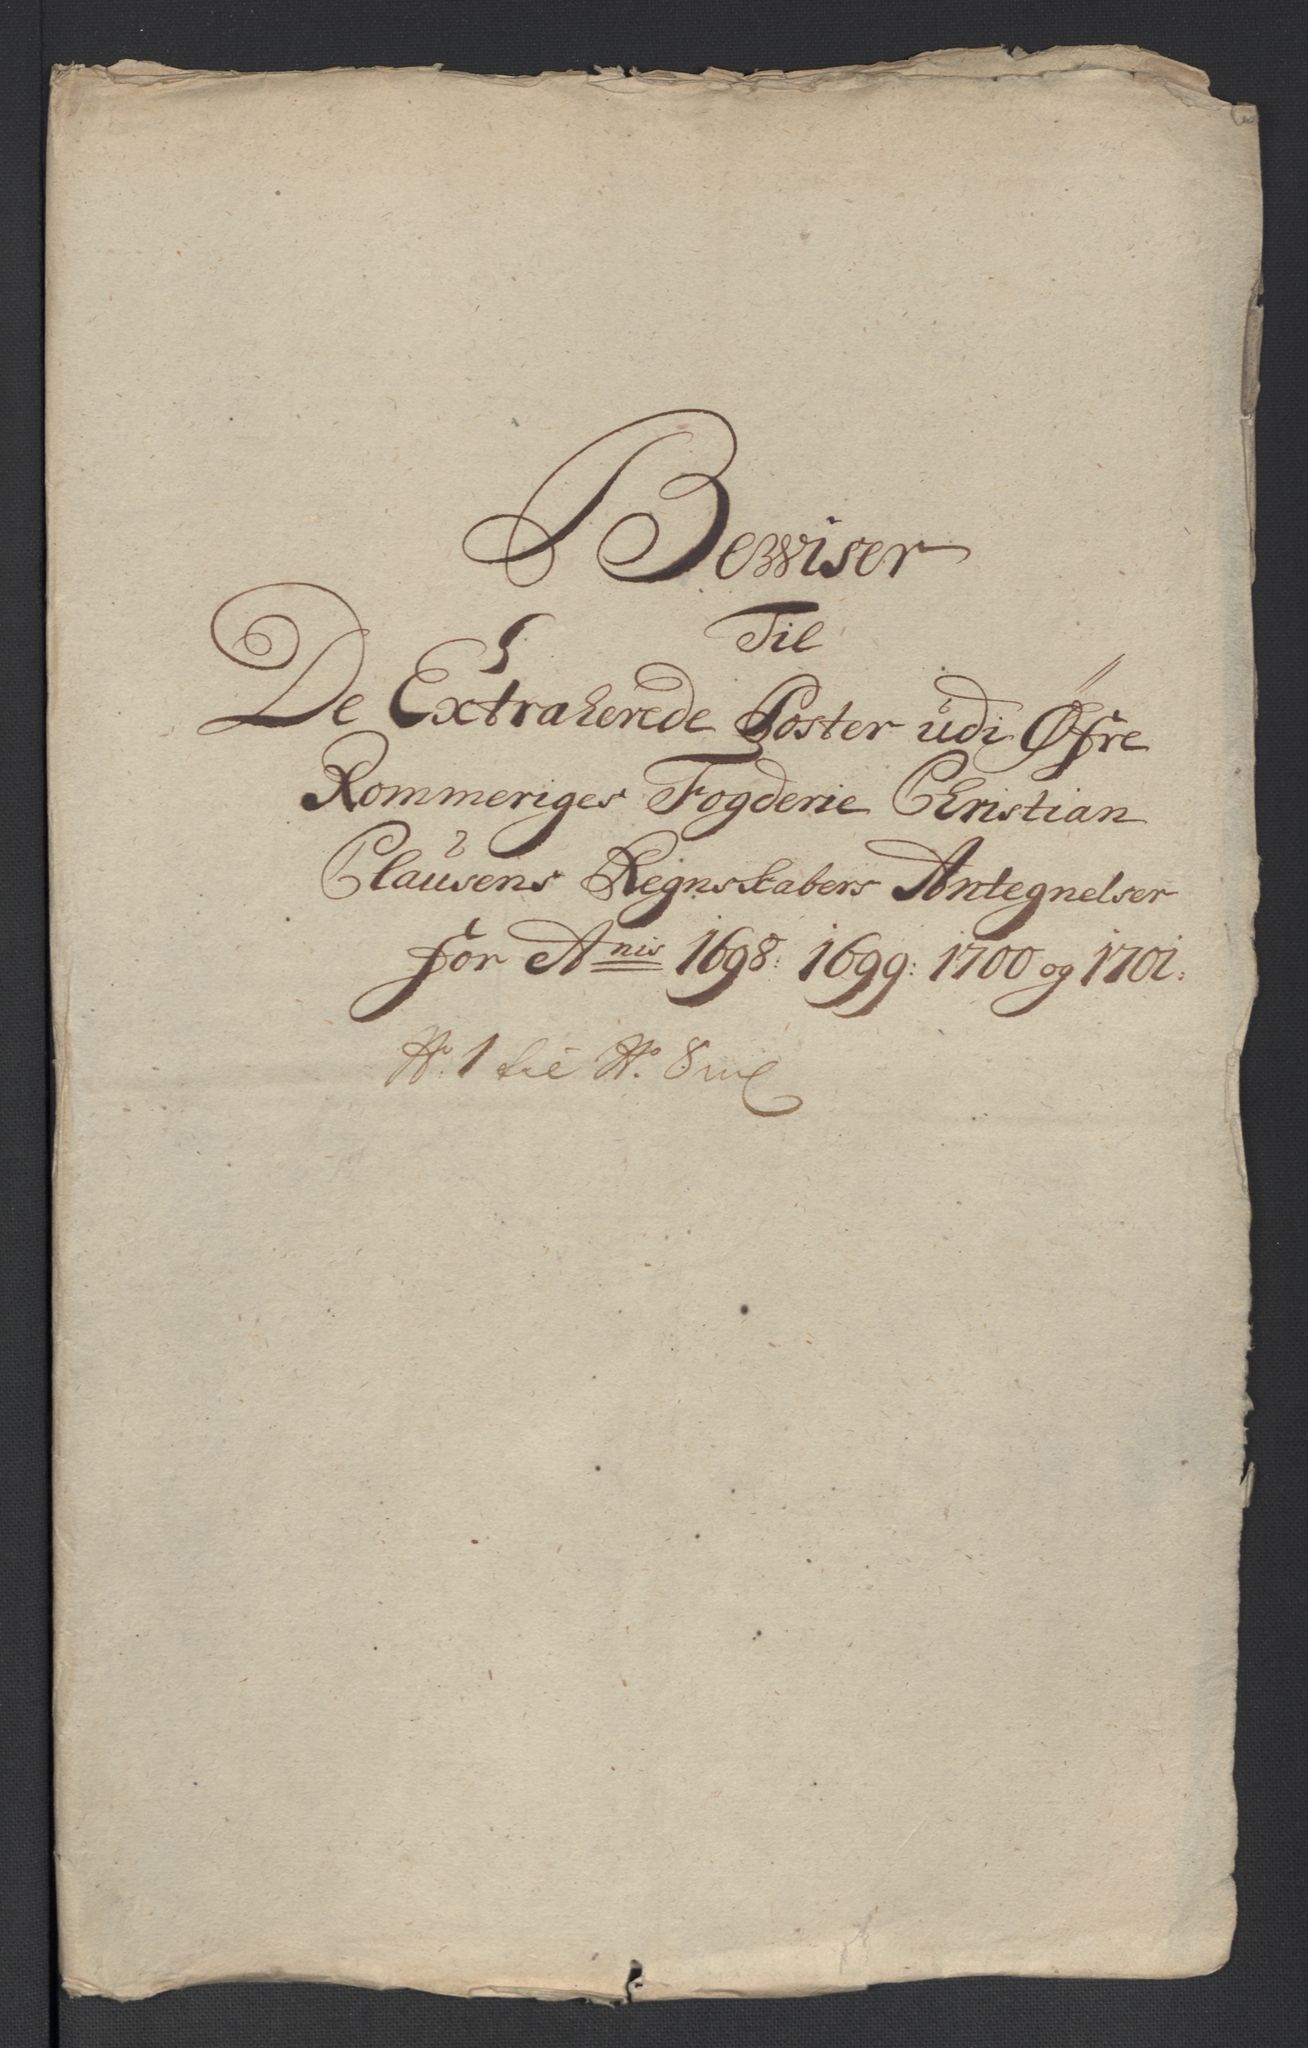 Bewiser
Til
De Extraherede Poster udi Øfre
Rommeriges Fogderie Christian
Clausens Regnskabers Antegnelser
for Anis 1698: 1699: 1700 og 1701:
No. 1 til No. 8